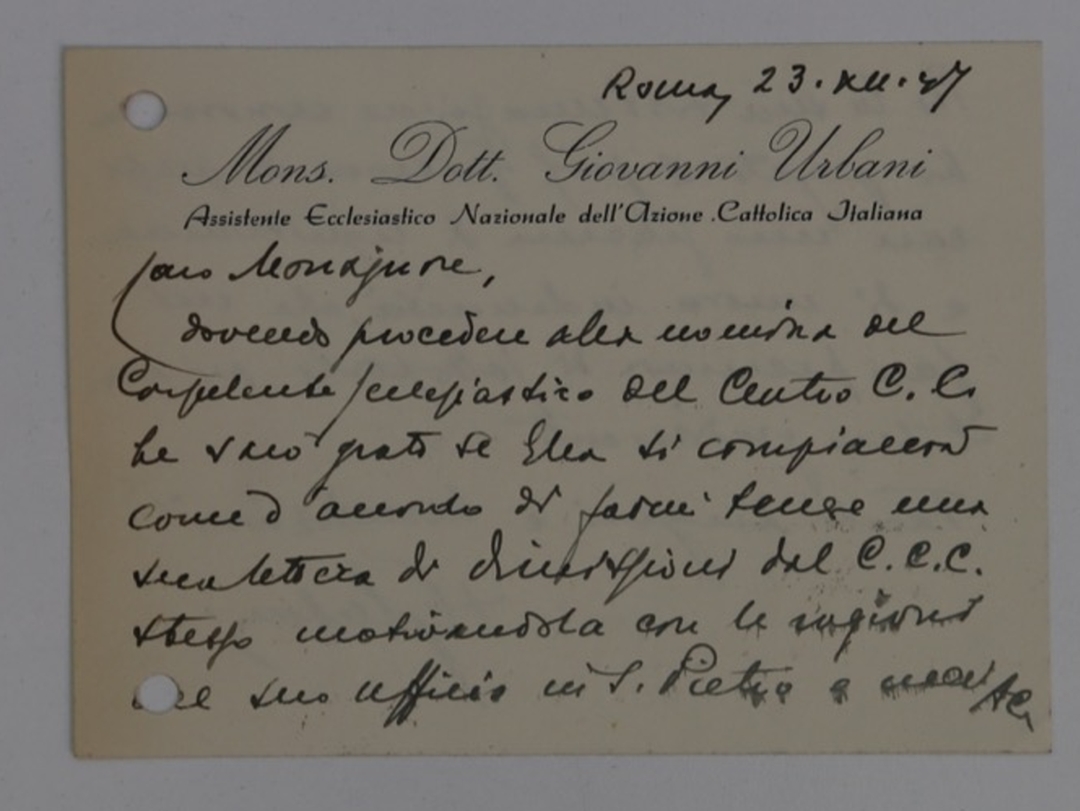 Roma, 23.XII.47
Mons. Dott. Giovanni Urbani
Assistente Ecclesiastico Nazionale dell'Azione Cattolica Italiana
Caro Monsignore,
dovendo procedere alla nomina del
Consulente Ecclesiastico del Centro C. C.
Le sarò grato se Ella si compiacerà
come d'accordo di farmi tenere una
sua lettera di dimissioni dal C.C.C.
stesso motivandola con le ragioni
del suo ufficio in S. Pietro e